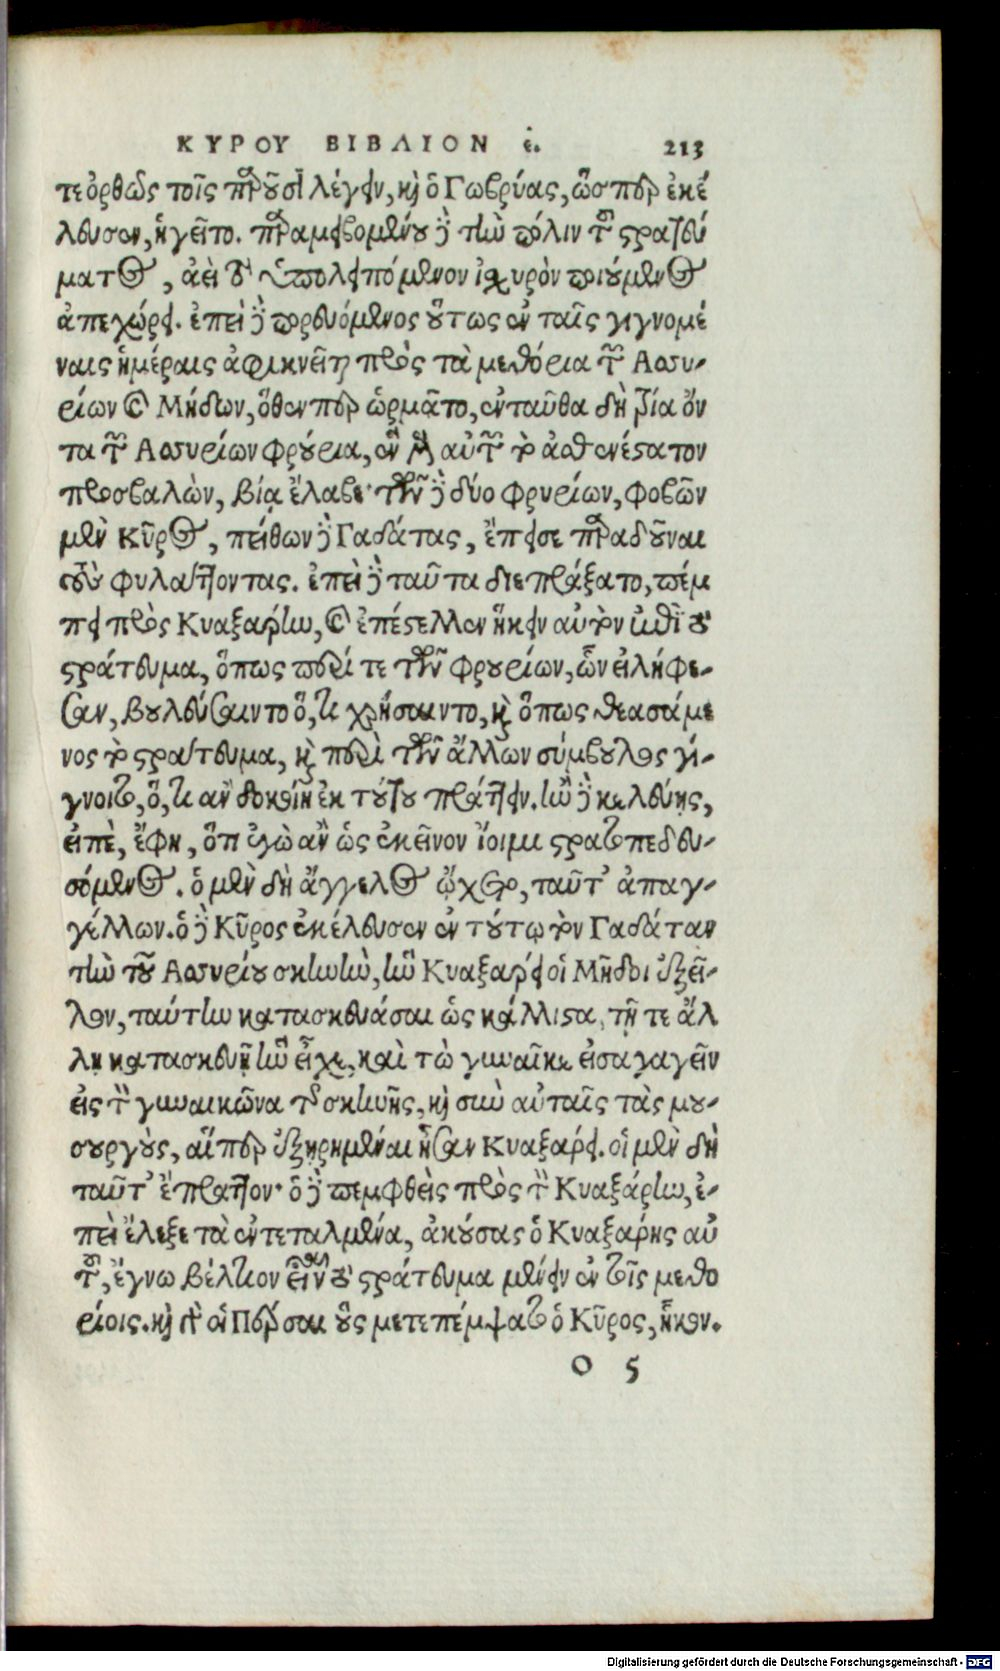 ΚΥΡΟΥ ΒΙΒΛΙΟΝ ε. 213
τε ὀρθῶς τοῖς παροῦσι λέγειν, καὶ ὁ Γωβρύας, ὥσπερ ἐκέ
λευσεν, ἡγεῖτο. παραμειβομένου δὲ τὴν πόλιν τοῦ στρατεύ
ματος, ἀεὶ τὸ ὑπολειπόμενον ἰσχυρὸν ποιούμενος
ἀπεχώρει. ἐπεὶ δὲ πορευόμενος οὕτως ἐν ταῖς γιγνομέ
ναις ἡμέραις ἀφικνεῖται πρὸς τὰ μεθόρια τῶν Ασσυ-
ρίων καὶ Μήδων, ὅθενπερ ὡρμᾶτο, ἐνταῦθα δὴ τρία ὄν
τα τῶν Ασσυρίων φρούρια, ἓν μὲν αὐτῶν τὸ ἀσθενέστατον
προσβαλὼν, βίᾳ ἔλαβε· τοῖν δὲ δύο φρουρίων, φοβῶν
μὲν Κῦρος, πείθων δὲ Γαδάτας, ἔπεισε παραδοῦναι
τοὺς φυλάττοντας. ἐπεὶ δὲ ταῦτα διεπράξατο, πέμ
πει πρὸς Κυαξάρην, καὶ ἐπέστελλεν ἥκειν αὐτὸν ἐπὶ τὸ
στράτευμα, ὅπως περί τε τῶν φρουρίων, ὧν εἰλήφε-
σαν, βουλεύσαιντο ὅ, τι χρήσαιντο, καὶ ὅπως θεασάμε
νος τὸ στράτευμα, καὶ περὶ τῶν ἄλλων σύμβουλος γί-
γνοιτο, ὅ, τι ἂν δοκοίη ἐκ τούτου πράττειν. ἢν δὲ κελεύῃς,
εἰπὲ, ἔφη, ὅτι ἐγὼ ἂν ὡς ἐκεῖνον ἴοιμι στρατοπεδευ-
σόμενος. ὁ μὲν δὴ ἄγγελος ᾤχετο, ταῦτ' ἀπαγ-
γέλλων. ὁ δὲ Κῦρος ἐκέλευσεν ἐν τούτῳ τὸν Γαδάταν
τὴν τοῦ Ασσυρίου σκηνὴν, ἣν Κυαξάρει οἱ Μῆδοι ἐξεῖ-
λον, ταύτην κατασκευάσαι ὡς κάλλιστα, τῇ τε ἄλ
λῃ κατασκευῇ ἣν εἶχε, καὶ τὼ γυναῖκε εἰσαγαγεῖν
εἰς τὸν γυναικῶνα τῆς σκηνῆς, καὶ σὺν αὐταῖς τὰς μου-
σουργοὺς, αἵπερ ἐξῃρημέναι ἦσαν Κυαξάρει. οἱ μὲν δὴ
ταῦτ' ἔπραττον· ὁ δὲ πεμφθεὶς πρὸς τὸν Κυαξάρην, ἐ-
πεὶ ἔλεξε τὰ ἐντεταλμένα, ἀκούσας ὁ Κυαξάρης αὐ
τοῦ, ἔγνω βέλτιον εἶναι τὸ στράτευμα μένειν ἐν τοῖς μεθο
ρίοις. καὶ γὰρ οἱ Πέρσαι οὓς μετεπέμψατο ὁ Κῦρος, ἧκον.
O 5
Digitalisierung gefördert durch die Deutsche Forschungsgemeinschaft - DFG